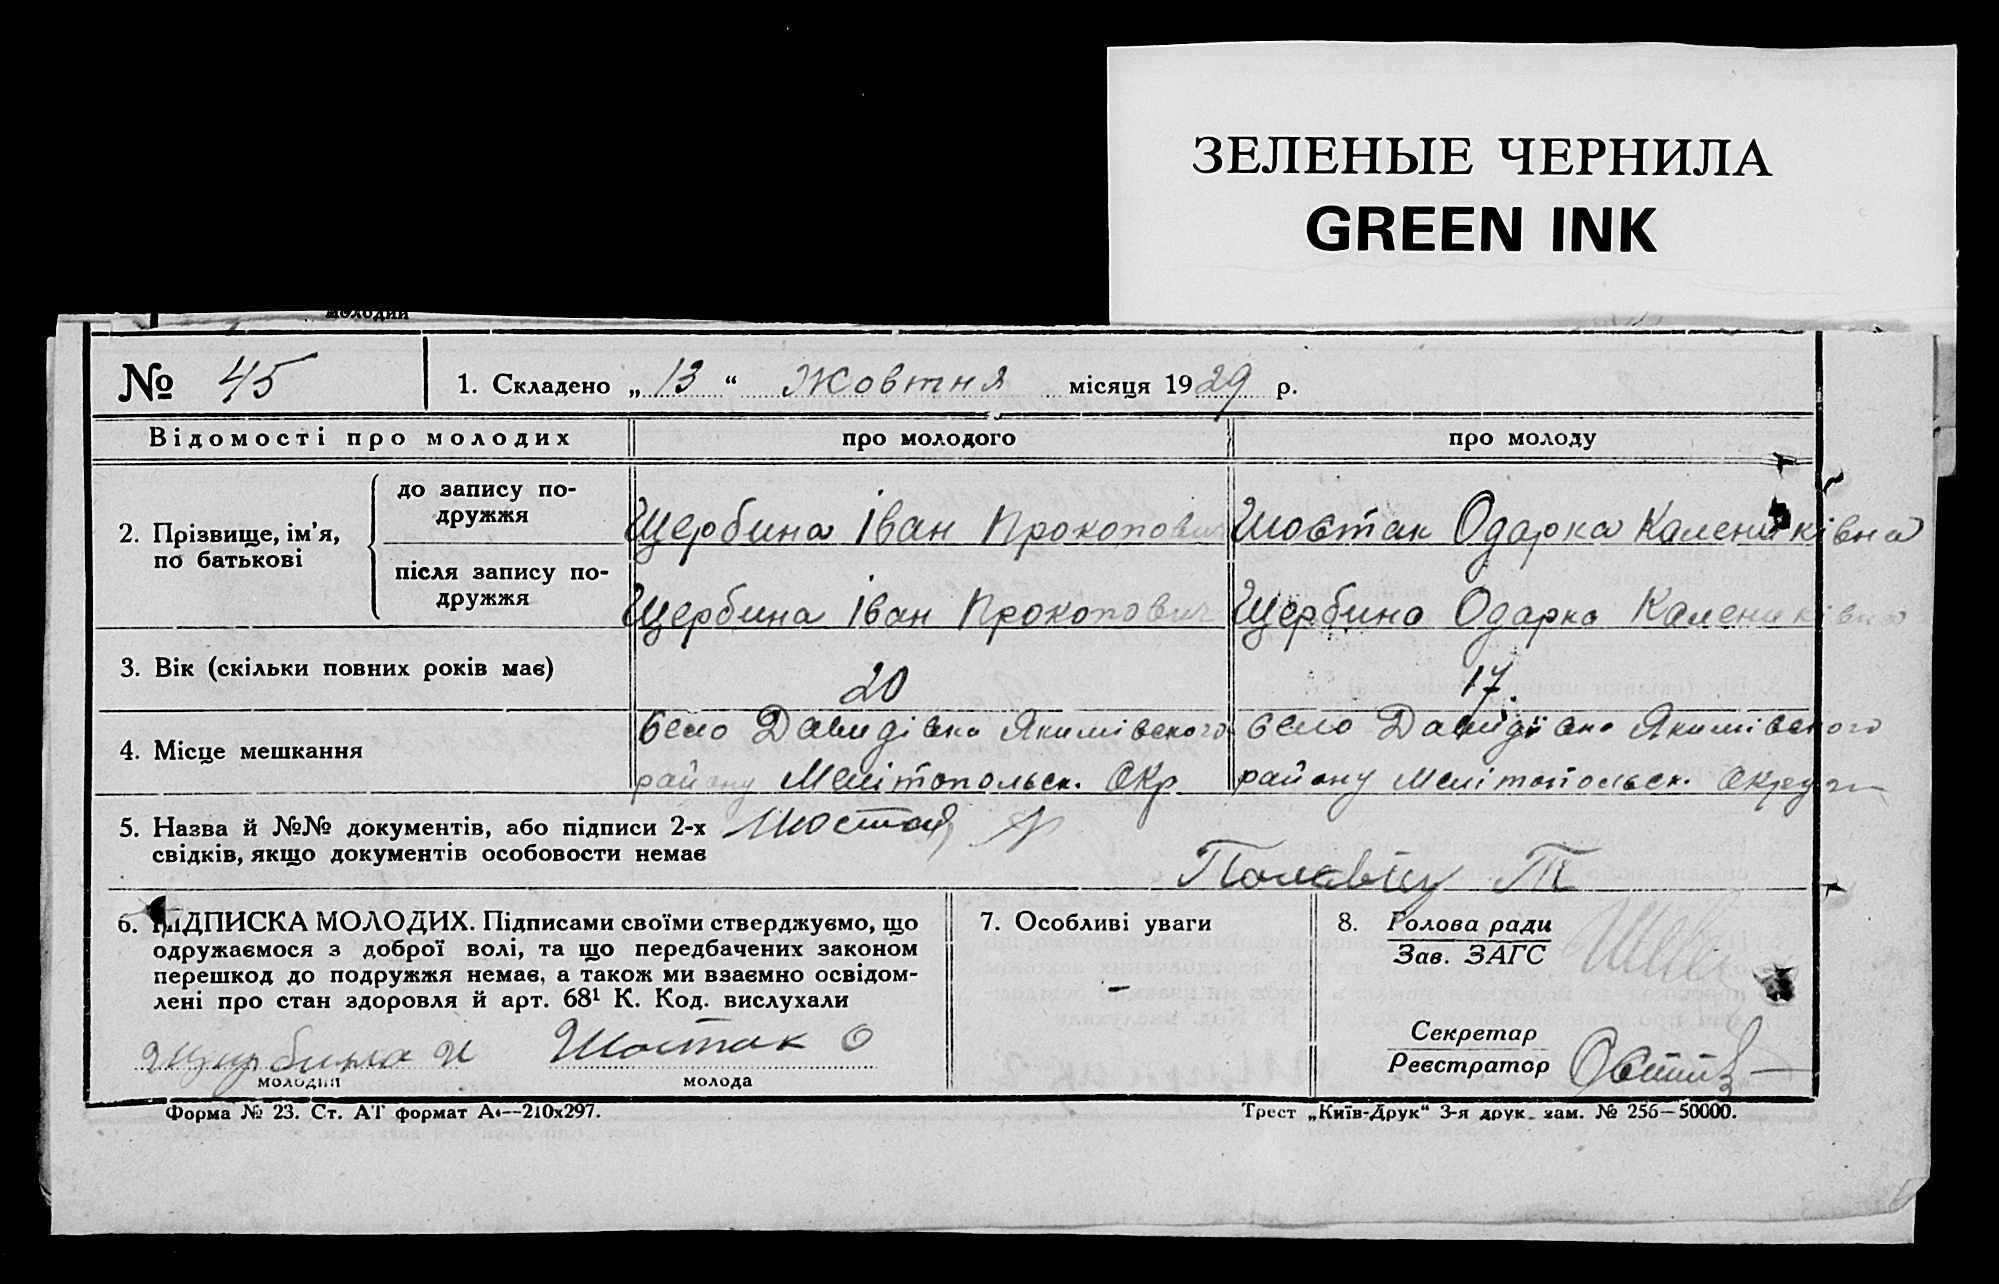 ЗЕЛЕНЫЕ ЧЕРНИЛА
GREEN INK
молодий
№ 45
1. Складено „13“ Жовтня місяця 1929 р.
Відомості про молодих
про молодого
про молоду
2. Прізвище, ім’я, по батькові
до запису по-
дружжя
Щербина Іван Прокопович
Шостак Одарка Калениківна
після запису по-
дружжя
Щербина Іван Прокопович
Щербина Одарка Калениківна
3. Вік (скільки повних років має)
20
17.
4. Місце мешкання
село Давидівка Якимівського
району Мелітопольск. Окр
село Давидівка Якимівського
району Мелітопольск. Округи
5. Назва й №№ документів, або підписи 2-х
свідків, якщо документів особовости немає
Шостак
Т
6. ПІДПИСКА МОЛОДИХ. Підписами своїми стверджуємо, що
одружаємося з доброї волі, та що передбачених законом
перешкод до подружжя немає, а також ми взаємно освідом-
лені про стан здоровля й арт. 68¹ К. Код. вислухали
Щурбина И
молодий
Шостак О
молода
7. Особливі уваги
–
8. Голова ради
Зав. ЗАГС
Секретар
Реєстратор
Форма № 23. Ст. АТ формат А4—210х297.
Трест „Київ-Друк“ 3-я друк. зам. № 256—50000.